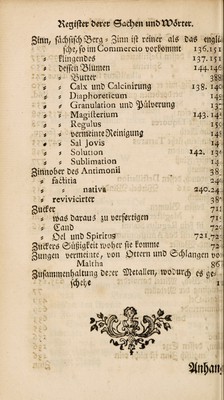 Register derer Sachen und Wörter.
Zinn, sächsisch Berg-Zinn ist reiner als das engli
sche, so im Commercio vorkommt 136.151
= klingendes 137.151
= dessen Blumen 144.146
= = Butter 388
= = Calx und Calcinirung 138.140
= = Diaphoreticum 14
= = Granulation und Pülverung
= = Magisterium 143.14
= = Regulus 150
= = vermeinte Reinigung
= = Sal Jovis 14
= = Solution 142.
= = Sublimation 14
Zinnober des Antimonii 38
= factitia 240.
= = nativa 240.24
= revivicirter 38
Zucker 71
= was daraus zu verfertigen 71
= Cand 72
= Oel und Spiritus 721.72
Zuckers Süßigkeit woher sie komme 72
Zungen vermeinte, von Ottern und Schlangen vo
Maltha 86
Zusammenhaltung derer Metallen, wodurch es ge
schehe 1
Anhan